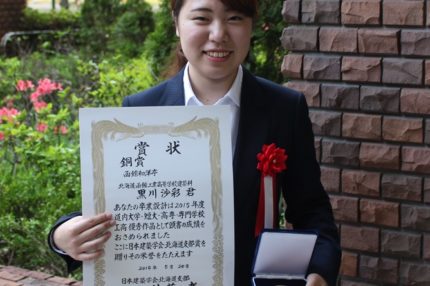 賞状
銅賞
函館和洋亭
北海道函館工業高等学校建築科
黒川 沙彩 君
あなたの卒業設計は2015年度
道内大学・短大・高専・専門学校
工高優秀作品として頭書の成績を
おさめられました
ここに日本建築学会北海道支部賞を
贈りその栄誉をたたえます
2016年5月28日
日本建築学会北海道支部